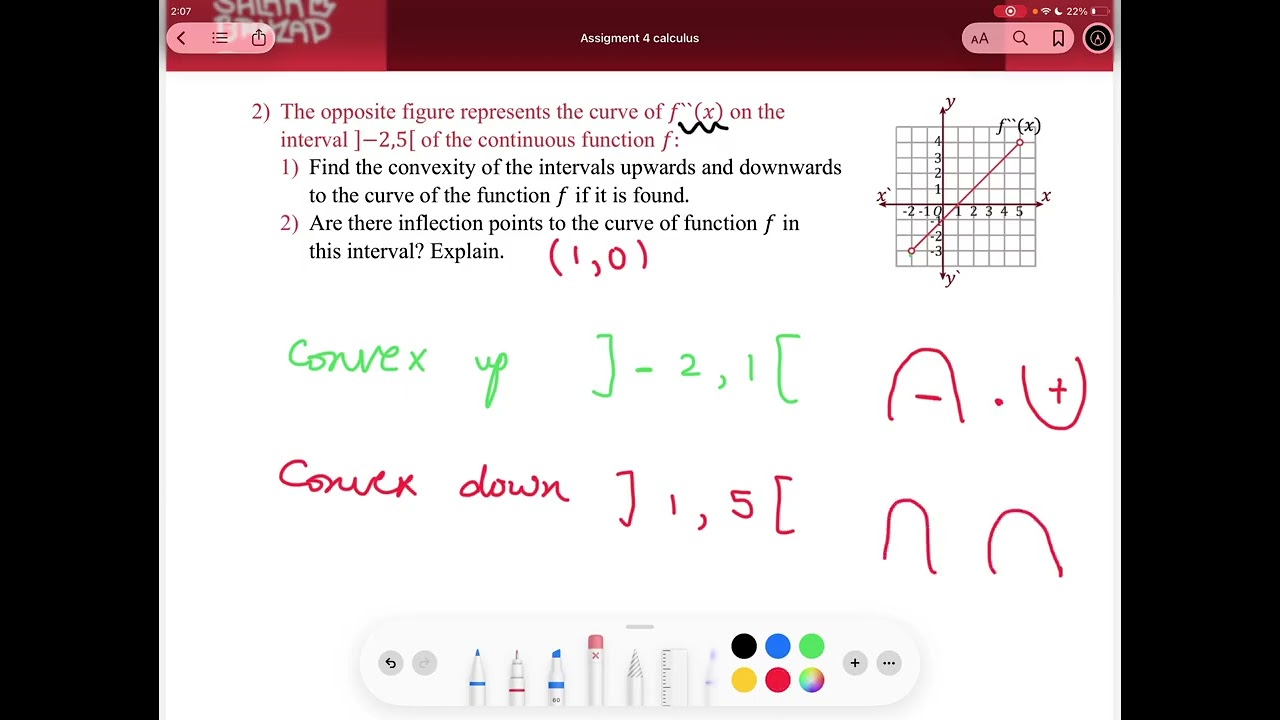 2:07
22%
Assigment 4 calculus
AA
2) The opposite figure represents the curve of f``(x) on the
interval ]−2,5[ of the continuous function f:
1) Find the convexity of the intervals upwards and downwards
to the curve of the function f if it is found.
2) Are there inflection points to the curve of function f in
this interval? Explain. (1,0)
y
f``(x)
4
3
2
1
x` x
-2 -1 0 1 2 3 4 5
-1
-2
-3
y`
Convex up ]-2,1[
- . +
Convex down ]1,5[
60